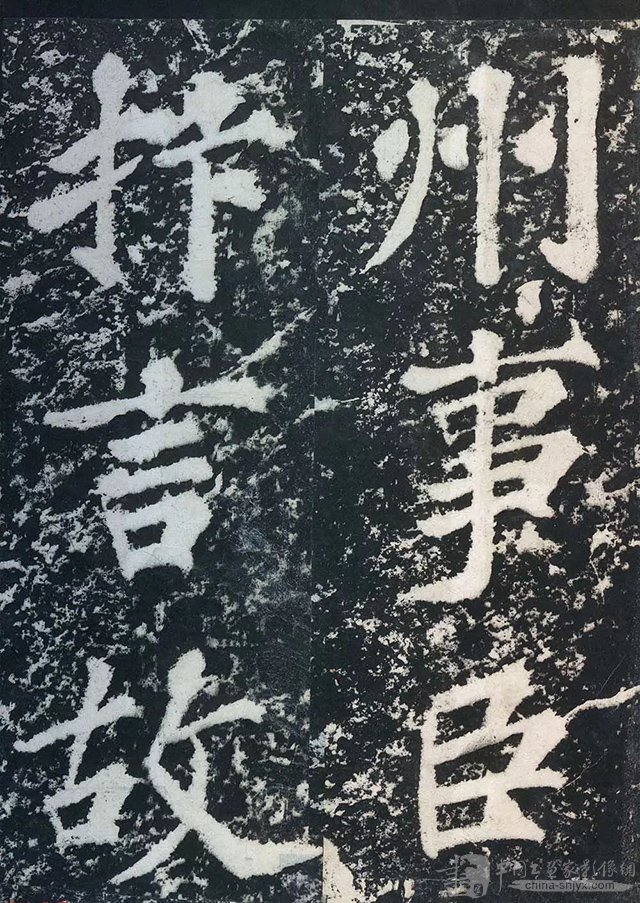 州事臣
抃言故
中国书画家影像網
china-shjyx.com